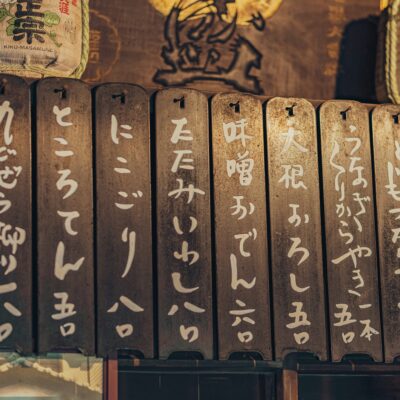 正宗
KIKU-MASAMUNE
うなぎ
くりからやき一本五〇
大根おろし五〇
味噌おでん六〇
たたみいわし八〇
にこごり八〇
ところてん五〇